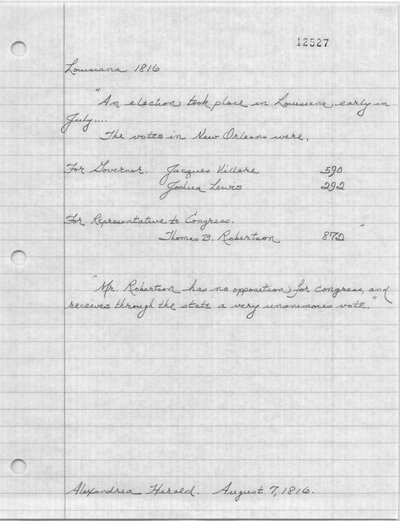 12527
Louisiana 1816
"An election took place in Louisiana early in
July....
The votes in New Orleans were,
For Governor. Jacques Villere 590
Joshua Lewis 292
For Representative to Congress.
Thomas B. Robertson 872 "
"Mr. Robertson has no opposition for congress, and
receives through the state a very unanimous vote."
Alexandria Herald. August 7, 1816.